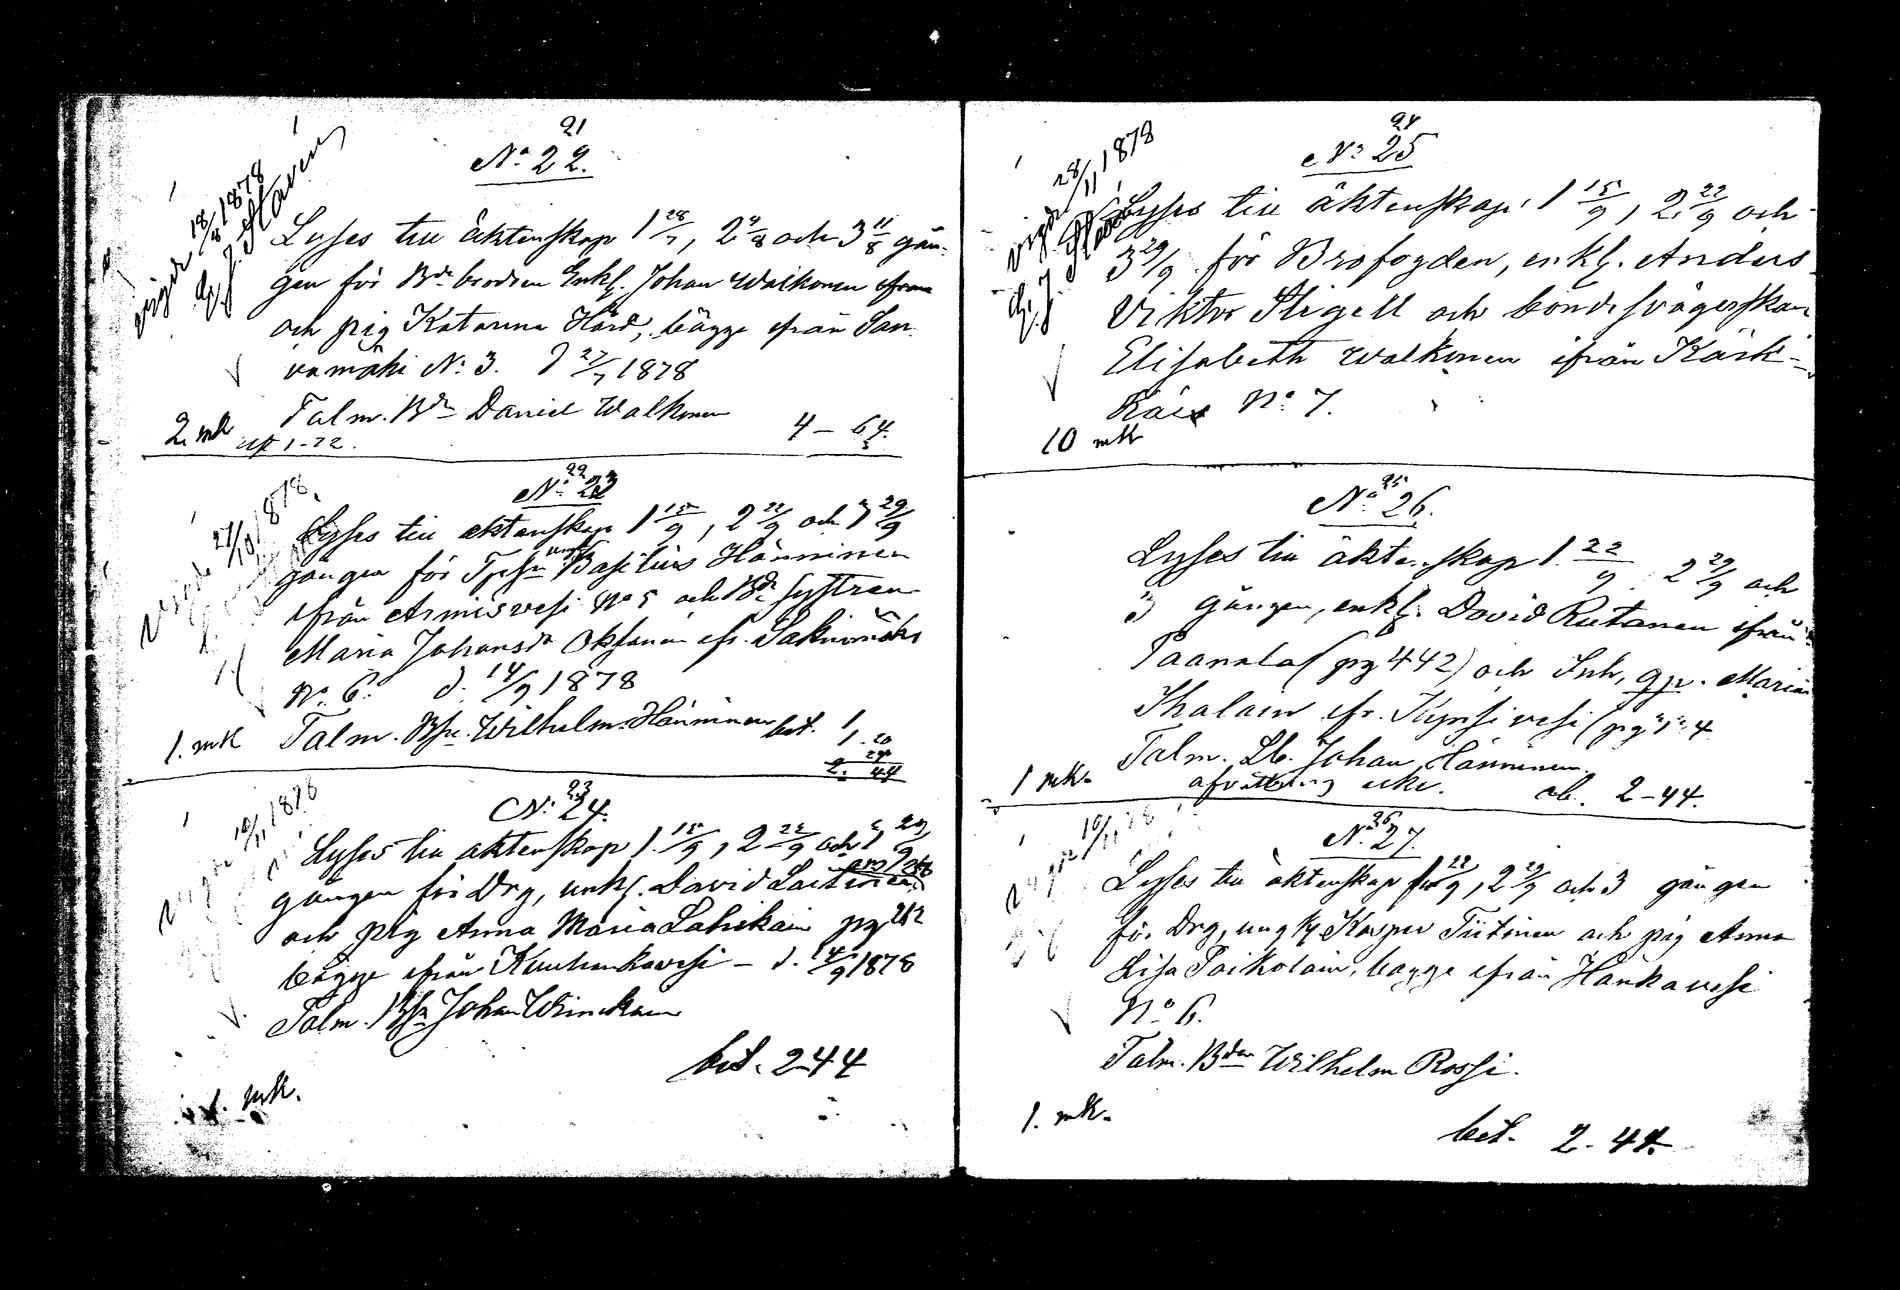 21
No 22.
vigde 18/8 1878
G. J. Stavén
Lyses till äktenskap 1 28/7, 2 4/8 och 3 11/8 gån-
gen för Bde brodren Enkl. Johan Walkonen
och pig Katarina Hård, bägge ifrån San
vamäki No 3. d 27/7 1878
Talm. Bdn Daniel Walkonen
2 mk
4 — 64.
22
No 23
vigde 27/10 1878.
Lyses till äktenskap 1 15/9, 2 22/9 och 3 29/9
gången för Basilius Hänninen
ifrån Armisvesi No 5 och Bde systren
Maria Johansdr Oksanen ifr.
No 6. d. 14/9 1878
1. mk Talm. Wilhelm Hänninen bet. 1
1.20
24
2. 44
23
No 24.
10/11 1878
Lyses till äktenskap 1. 15/9, 2 22/9 och 3 29/9
gången för Drg, unkl. David Laitinen
och pig Anna Maria Lahikain pg 212
bägge ifrån Kuuhankavesi — d. 14/9 1878
Talm. Johan
bet. 2-44
1. mk.
24
No 25
vigde 28/11 1878
G. J. Stavén
Lyses till äktenskap, 1 15/9, 2 22/9 och
3 29/9 för Brofogden, enkl. Anders
Viktor Stigell och bondesvägerskan
Elisabeth Walkonen ifrån Kärk-
No 7.
10 mk
25
No 26.
Lyses till äktenskap 1. 22/9 2 29/9 och
3 gången, enkl. David Rutanen ifrån
Paanala (pg 442) och Inh, gp. Maria
Ihalain ifr. Kynsivesi (pg
Talm. Johan Hänninen.
1 mk. 2-44.
26
No 27.
10/11 78
Lyses till äktenskap 1 22/9, 2 29/9 och 3 gången
för Drg, ungk Kasper Tiitinen och pig Anna
Lisa Poikolain, bägge ifrån Hankavesi
No 6.
Talm. Bden Wilhelm Rossi.
1. mk.
bet. 2-44.